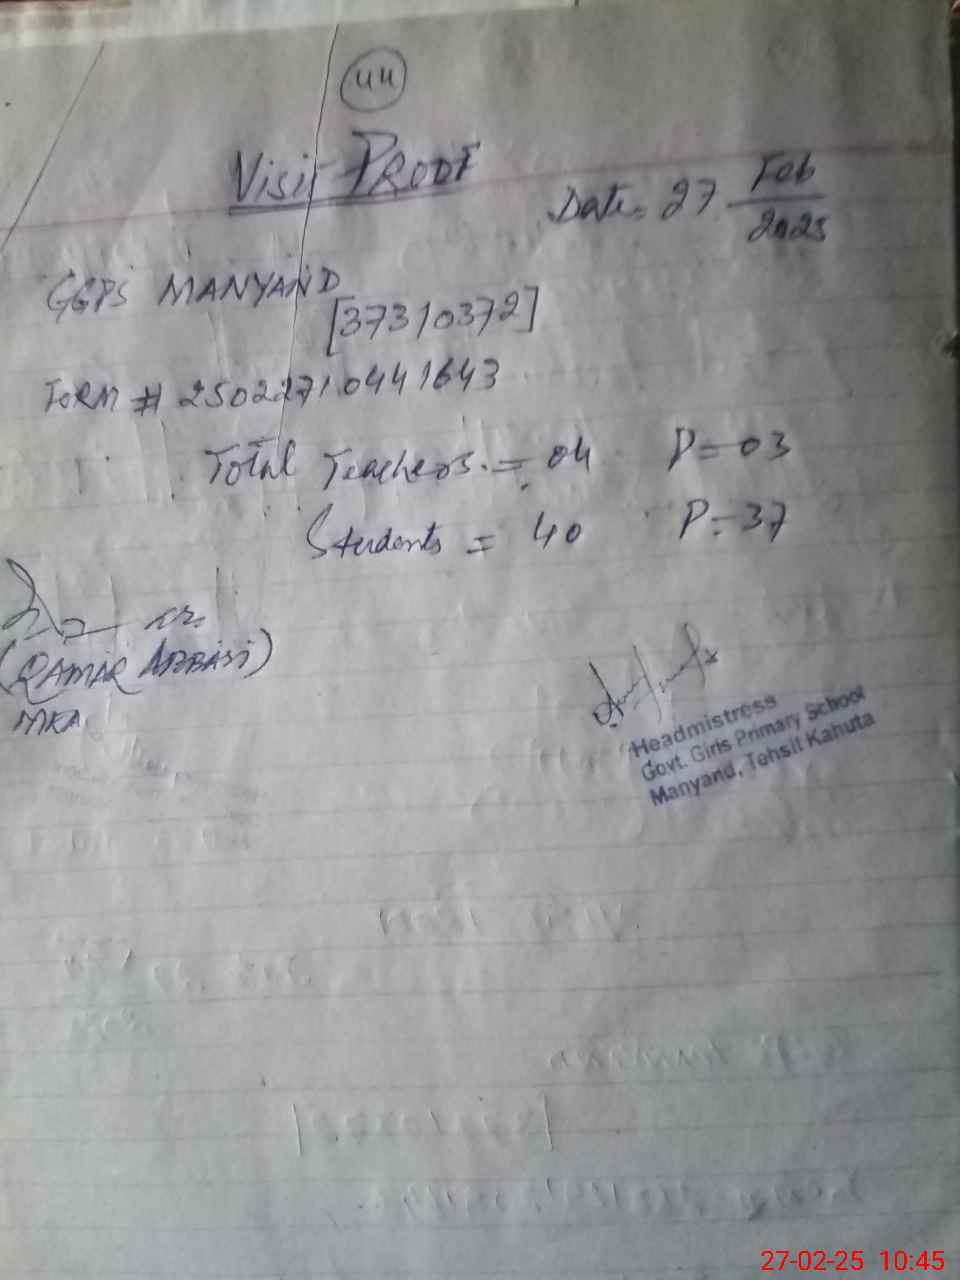 44
Visit PROOF
Date: 27 Feb 2025
GGPS MANYAND
[37310372]
FORM # 25022710441643
Total Teachers. = 04 P=03
Students = 40 P=37
(QAMAR ABBASI)
MKA
Headmistress
Govt. Girls Primary School
Manyand, Tehsil Kahuta
27-02-25 10:45